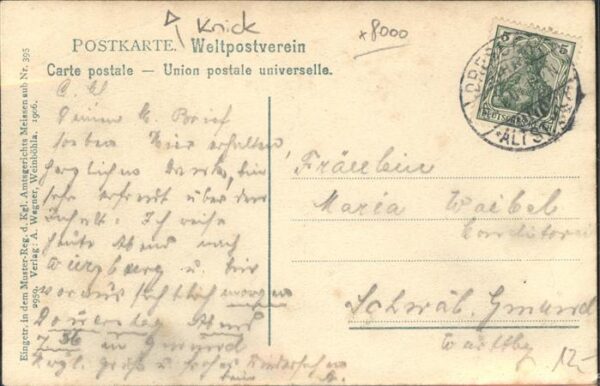 Knick
x8000
POSTKARTE. Weltpostverein
Carte postale — Union postale universelle.
5 5
DRESDEN
ALTST.
Deinen l. Brief
soeben hier erhalten
herzlichen Dank, bin
sehr erfreut über den
Inhalt. Ich reise
heute Abend nach
Würzburg u. bin
voraussichtlich morgen
Donnerstag Abend
7 56 in Gmünd
Hrzl. Gruß u. frohes Wiedersehen
Fräulein
Maria Waibel
Konditorei
Schwäb. Gmünd
Wrttbg
12-
Eingetr. in dem Muster-Reg. d. Kgl. Amtsgerichts Meissen sub Nr. 395
2950. Verlag: A. Wagner, Weinböhla. 1906.